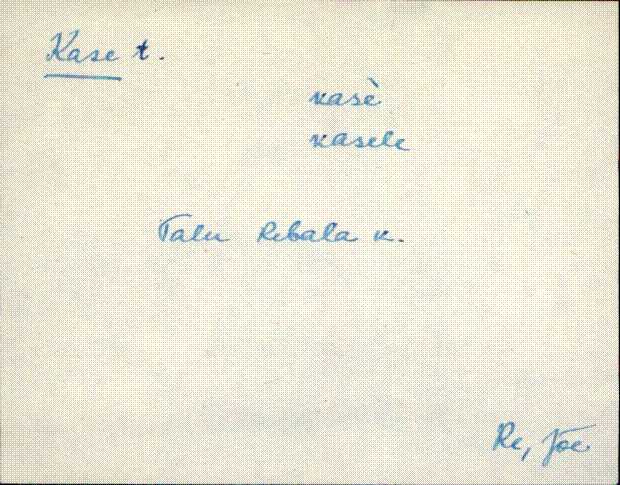 Kase t.
kasè
kasele
Talu Rebala k.
Re, Jõe